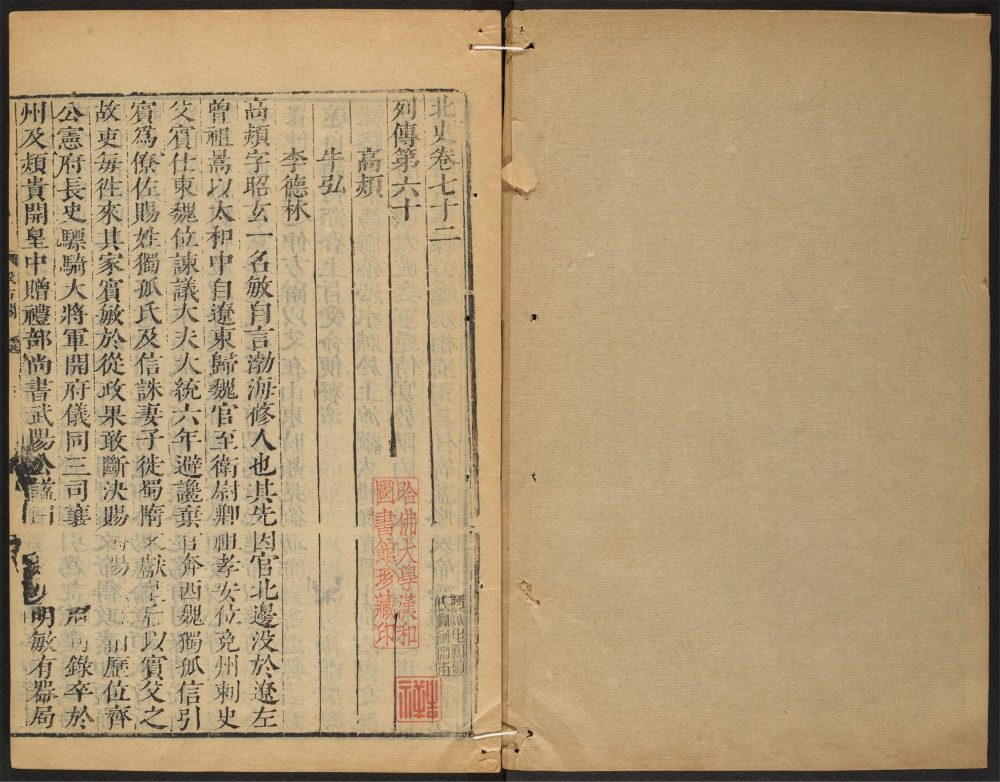 北史卷七十二
列傳第六十
高熲
牛弘
李德林
高熲字昭玄一名敏自言渤海蓨人也其先因官北邊没於遼左
曾祖暠以太和中自遼東歸魏官至衛尉卿祖孝安位兗州刺史
父賓仕東魏位諫議大夫大統六年避讒棄官奔西魏獨孤信引
賓爲僚佐賜姓獨孤氏及信誅妻子徙蜀隋獻皇后以賓父之
故吏每徃來其家賓敏於從政果敢斷決賜歴位齊
公憲府長史驃騎大將軍開府儀同三司襄州緫録卒於
州及熲貴開皇中贈禮部尚書武陽公諡曰明敏有器局
哈佛大學漢和
圖書館珍藏印